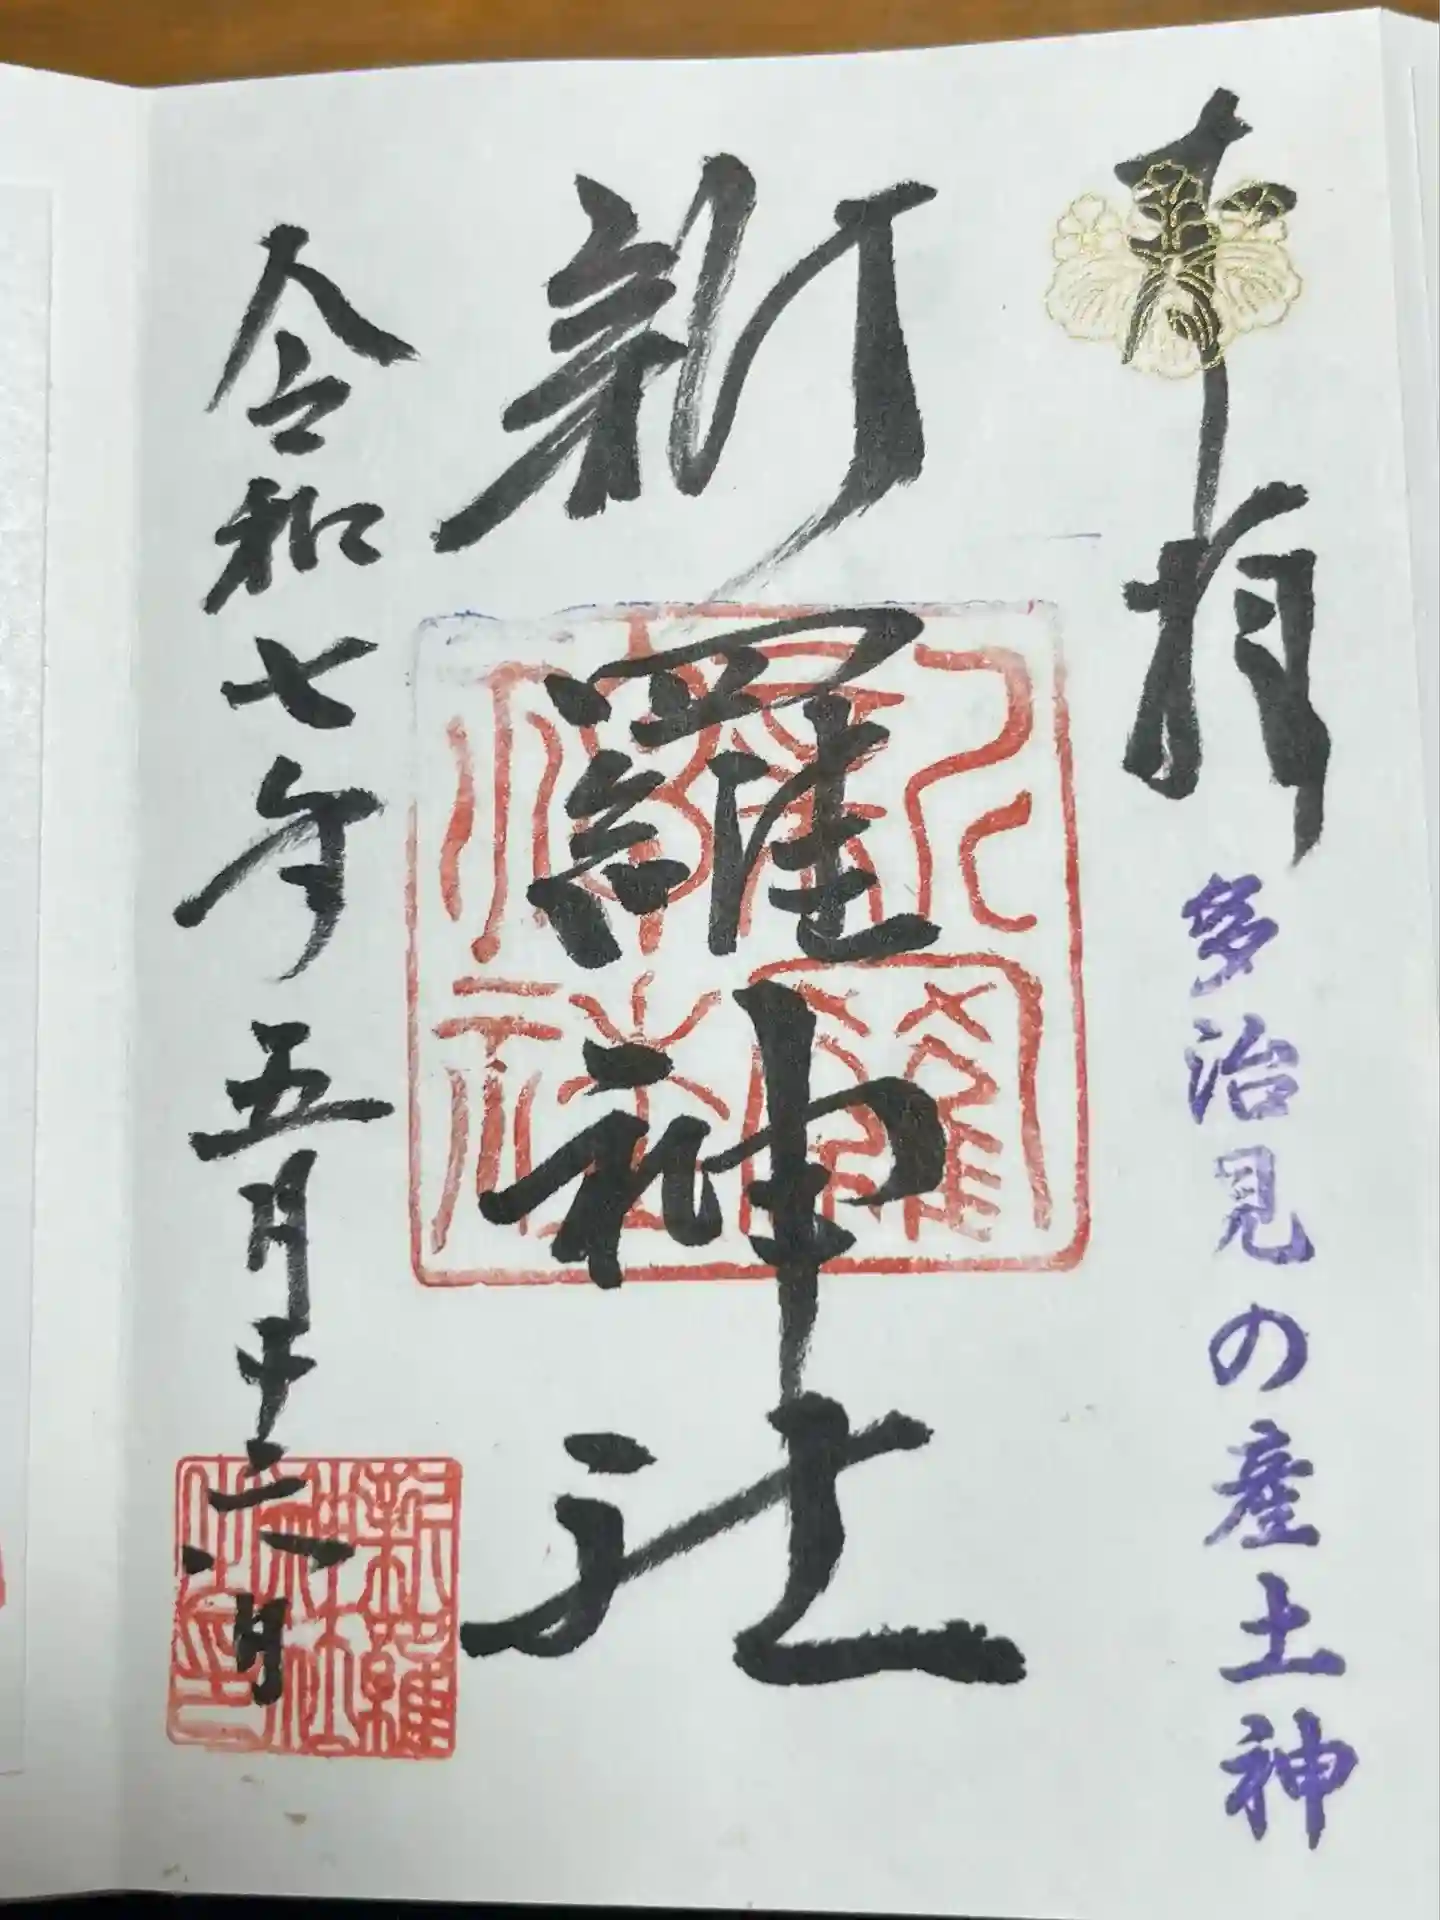 奉拝
多治見の産土神
新羅神社
令和七年五月十六日
新羅
神社
之印